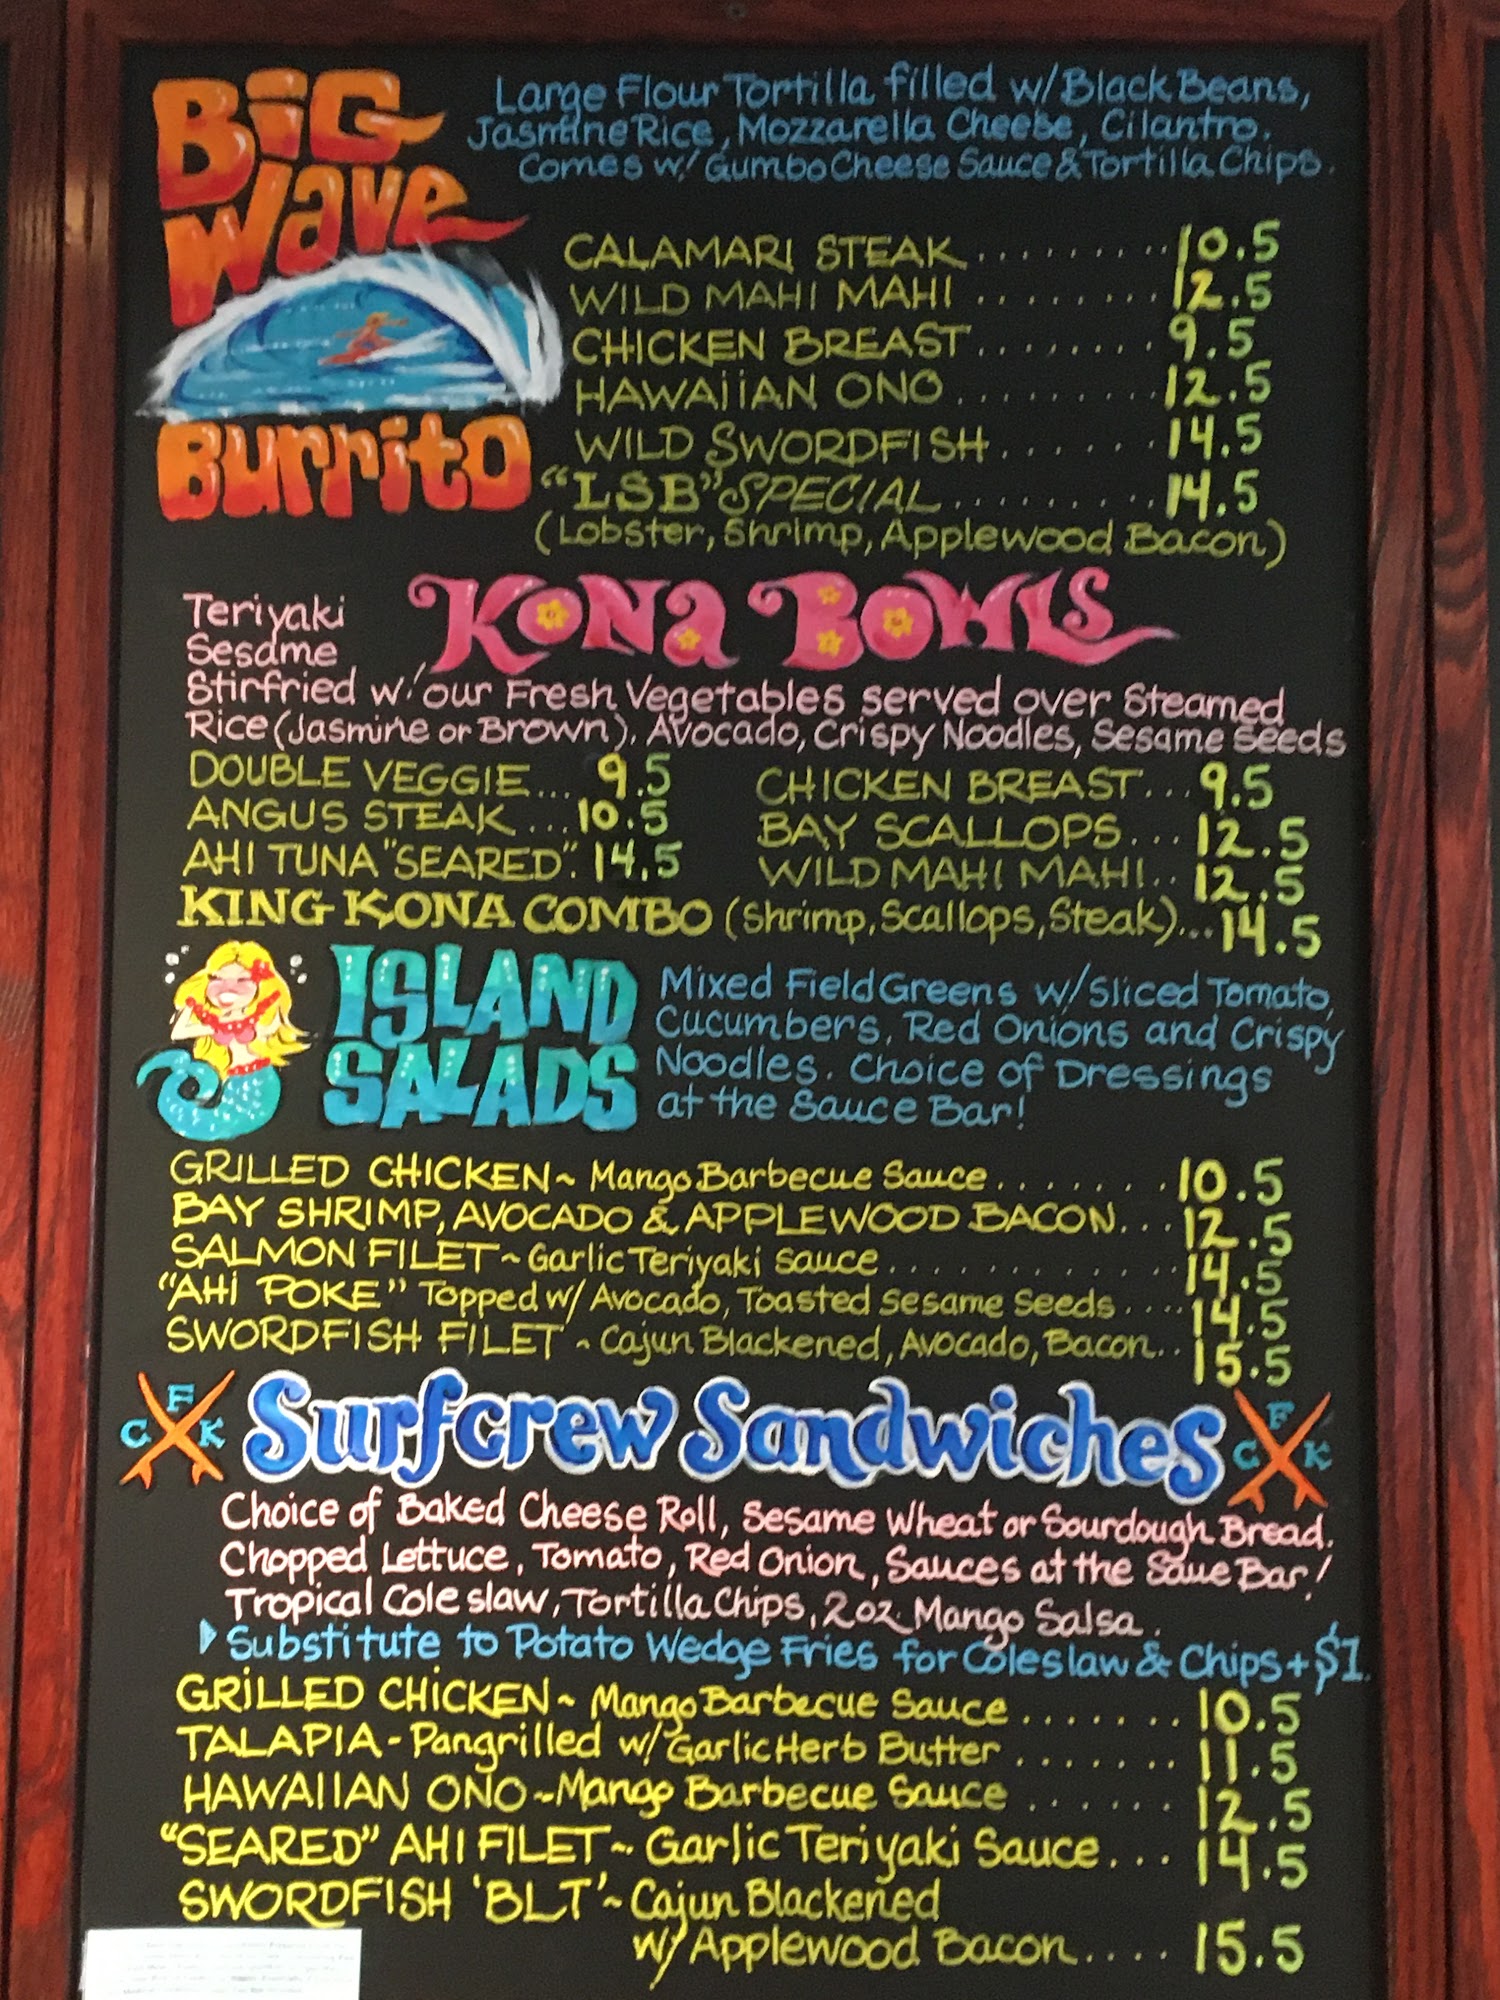 BiG
Wave
Burrito
Large Flour Tortilla filled w/Black Beans,
Jasmine Rice, Mozzarella Cheese, Cilantro.
Comes w/ Gumbo Cheese Sauce & Tortilla Chips.
CALAMARI STEAK ......... 10.5
WILD MAHI MAHI ......... 12.5
CHICKEN BREAST ......... 9.5
HAWAiiAN ONO .......... 12.5
WILD SWORDFISH ....... 14.5
"LSB" SPECIAL ......... 14.5
(Lobster, Shrimp, Applewood Bacon)
KONa BOWLS
Teriyaki
Sesame
Stirfried w/ our Fresh Vegetables served over Steamed
Rice (Jasmine or Brown). Avocado, Crispy Noodles, Sesame Seeds
DOUBLE VEGGIE... 9.5
ANGUS STEAK ... 10.5
AHI TUNA "SEARED". 14.5
CHICKEN BREAST... 9.5
BAY SCALLOPS... 12.5
WILD MAHI MAHI.. 12.5
KING KONA COMBO (Shrimp, Scallops, Steak)... 14.5
ISLAND
SALADS
Mixed Field Greens w/Sliced Tomato,
Cucumbers, Red Onions and Crispy
Noodles. Choice of Dressings
at the Sauce Bar!
GRILLED CHICKEN~ Mango Barbecue Sauce ....... 10.5
BAY SHRIMP, AVOCADO & APPLEWOOD BACON... 12.5
SALMON FILET ~ Garlic Teriyaki Sauce ............ 14.5
"AHi POKE" Topped w/ Avocado, Toasted Sesame Seeds .... 14.5
SWORDFISH FILET ~ Cajun Blackened, Avocado, Bacon.. 15.5
C F K
Surfcrew Sandwiches
C F K
Choice of Baked Cheese Roll, Sesame Wheat or Sourdough Bread.
Chopped Lettuce, Tomato, Red Onion, Sauces at the Saue Bar!
Tropical Cole slaw, Tortilla Chips, 2oz. Mango Salsa.
Substitute to Potato Wedge Fries for Coleslaw & Chips + $1.
GRiLLED CHiCKEN~ Mango Barbecue Sauce ....... 10.5
TALAPIA - Pangrilled w/ Garlic Herb Butter ....... 11.5
HAWAIIAN ONO ~Mango Barbecue Sauce ....... 12.5
"SEARED" AHI FILET ~ Garlic Teriyaki Sauce ... 14.5
SWORDFISH 'BLT' ~ Cajun Blackened
w/ Applewood Bacon .... 15.5